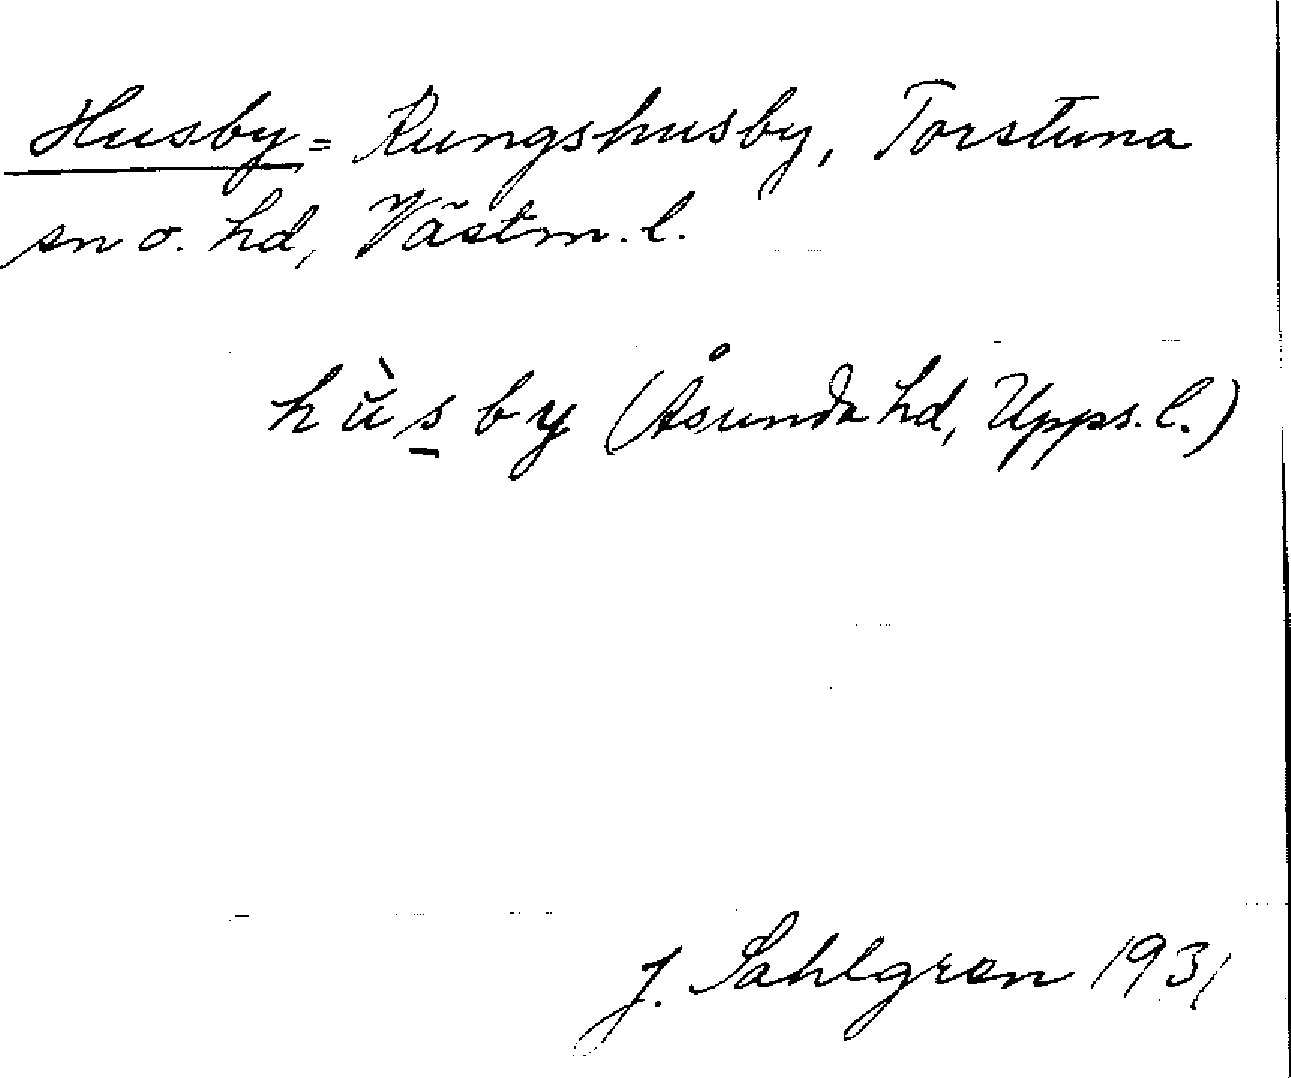 Husby = Rungshusby, Torstuna
sn o. hd, Västm. l.
hùsby (Åsunda hd, Upps. l.)
J. Sahlgren 1931